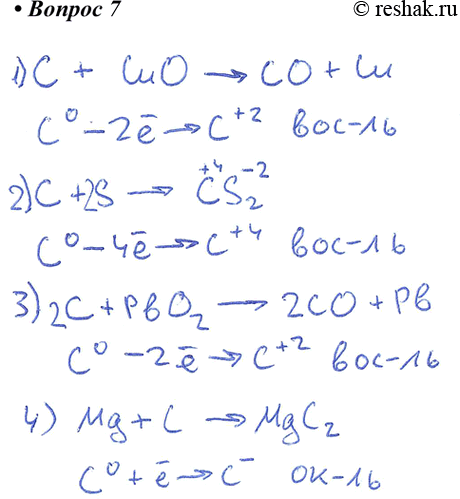 • Вопрос 7
© reshak.ru
1) C + CuO → CO + Cu
C⁰ - 2ē → C⁺² вос-ль
2) C + 2S → C⁺⁴S₂⁻²
C⁰ - 4ē → C⁺⁴ вос-ль
3) 2C + PbO₂ → 2CO + Pb
C⁰ - 2ē → C⁺² вос-ль
4) Mg + C → MgC₂
C⁰ + ē → C⁻ ок-ль